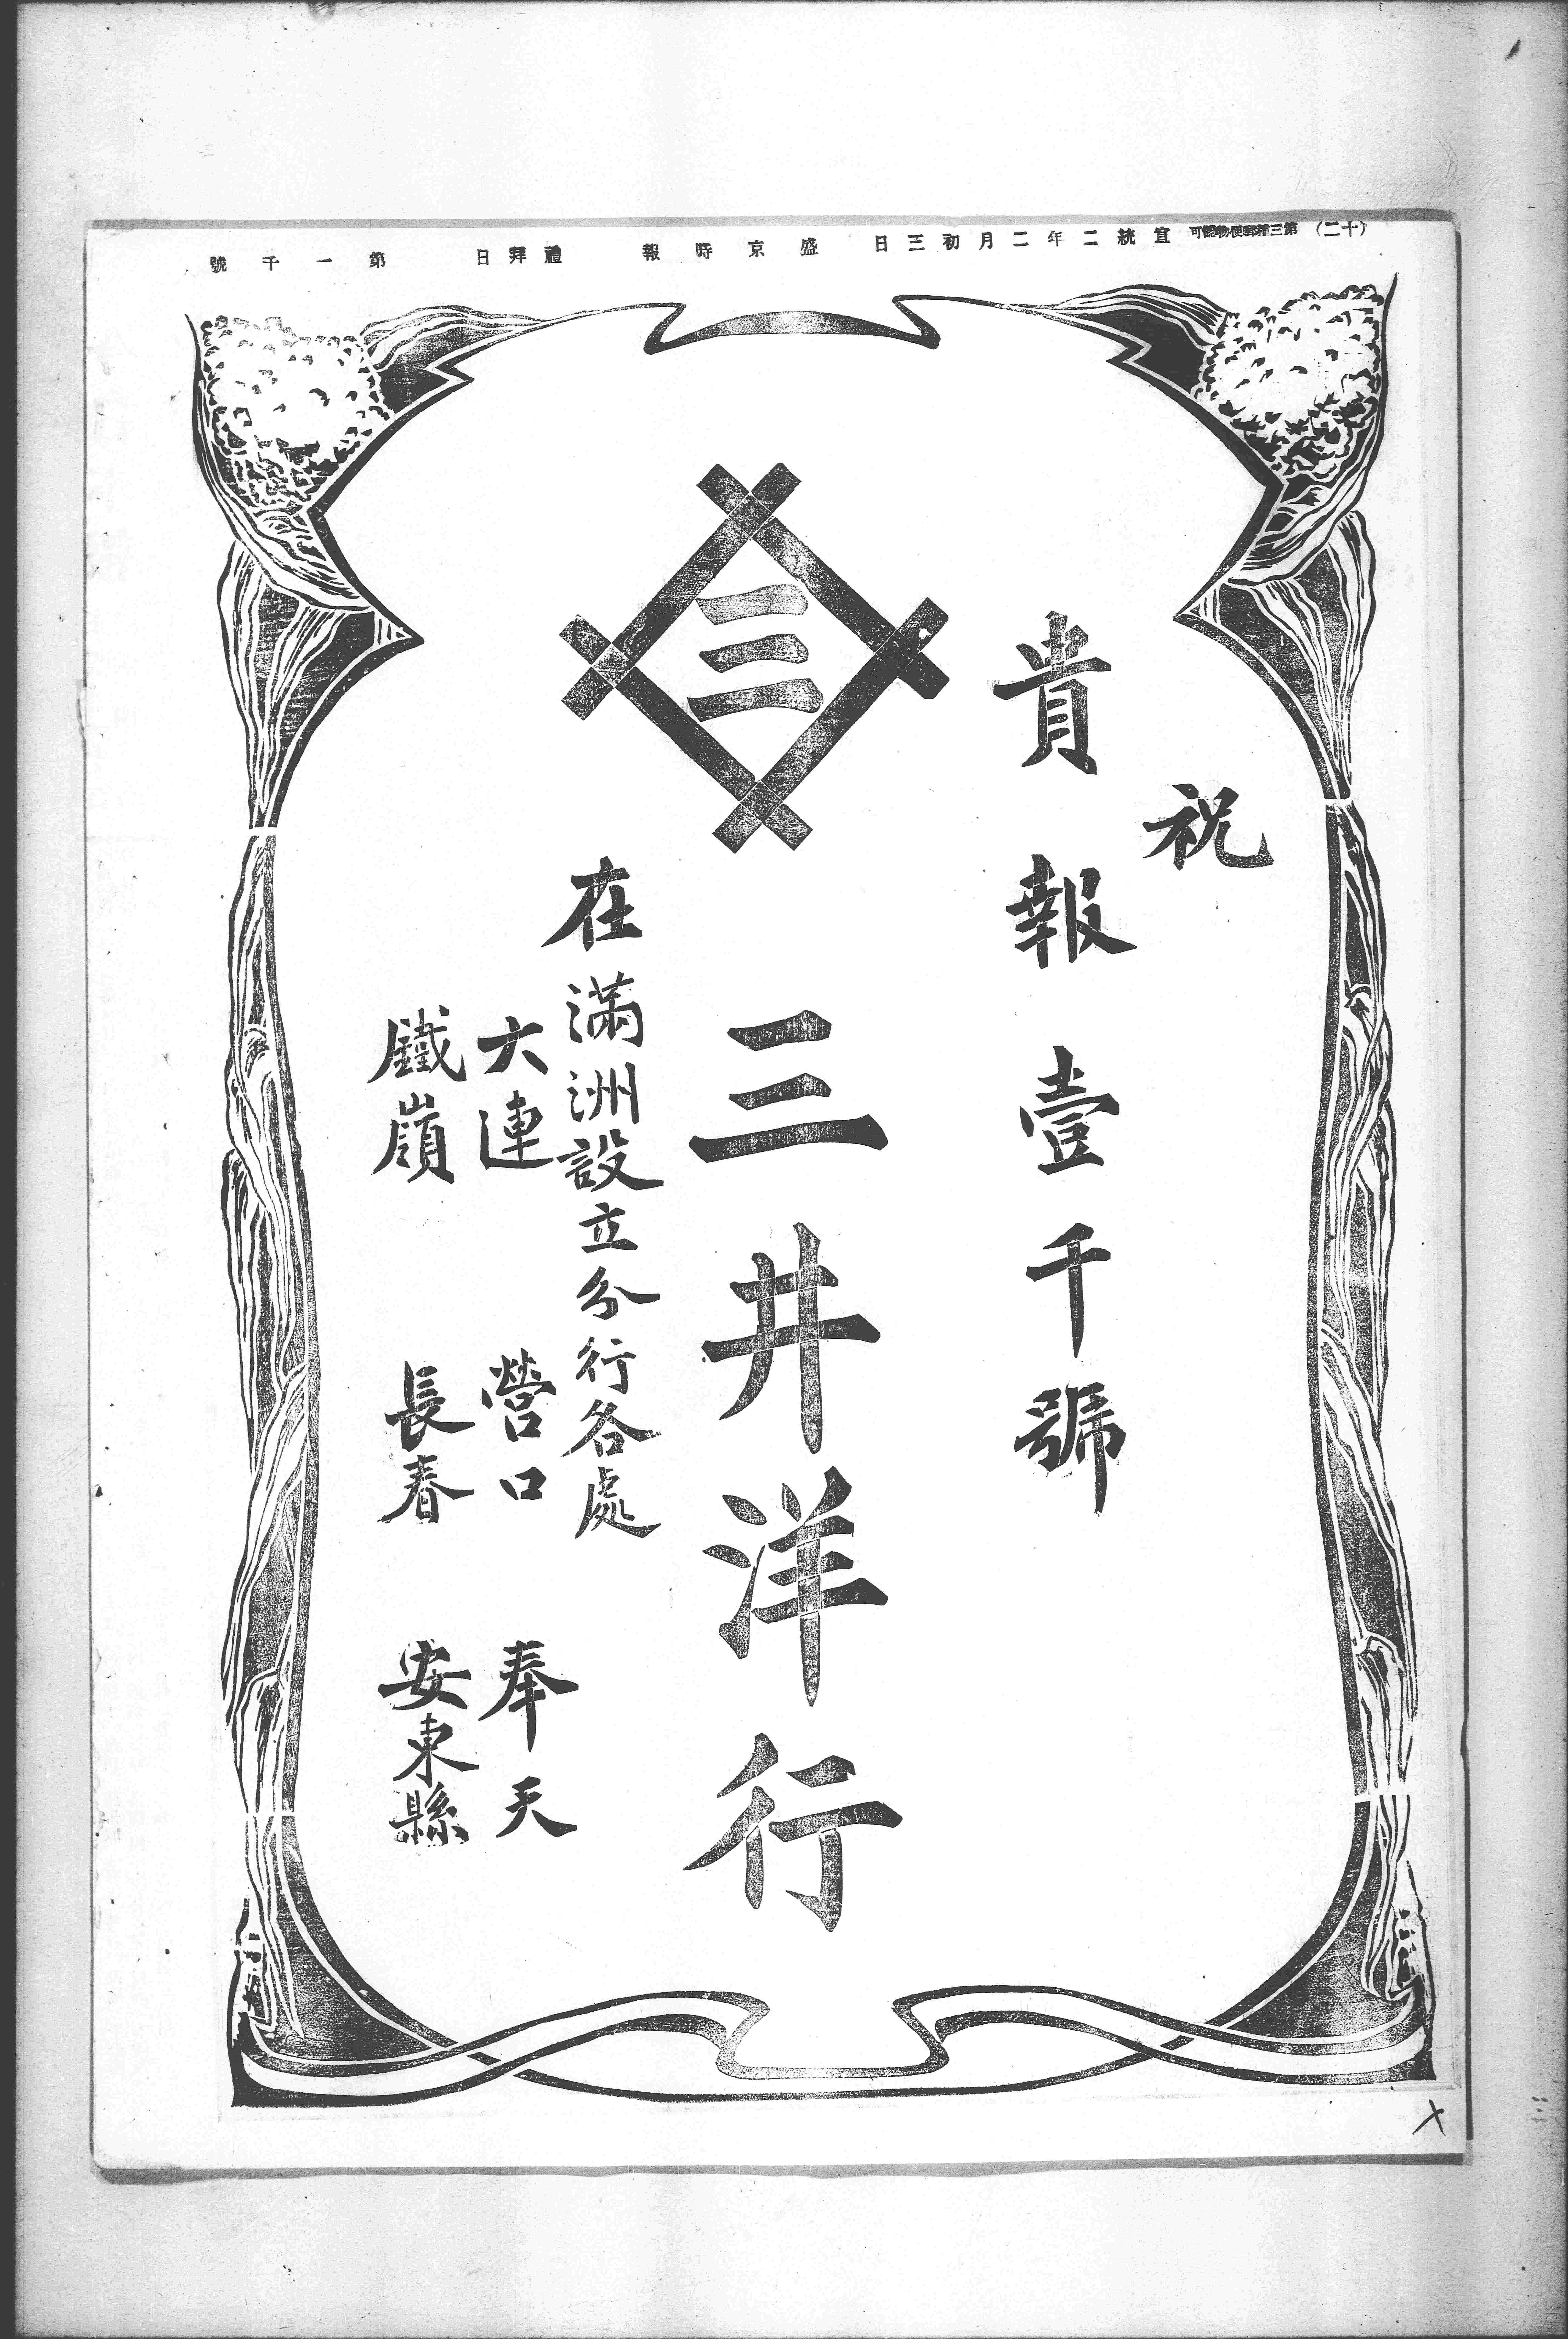 (二十) 第三種郵便物認可 宣統二年二月初三日 盛京時報 禮拜日 第一千號
祝
貴報壹千號
三
三井洋行
在滿洲設立分行各處
大連 營口 奉天
鐵嶺 長春 安東縣